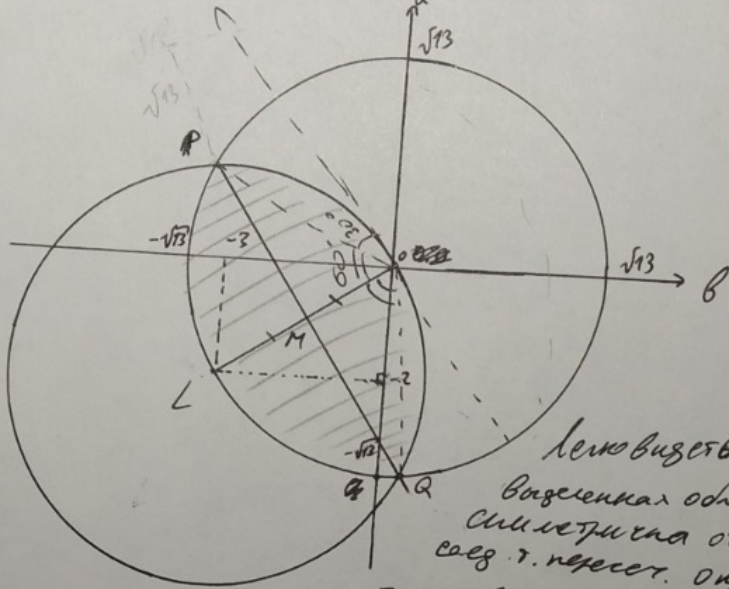 √13
√13
P
-√13
-3
30°
60
O
√13
b
M
L
-2
-√13
Q
Легко видеть
выделенная обл
симметрична о
соед. т. пересеч. ок